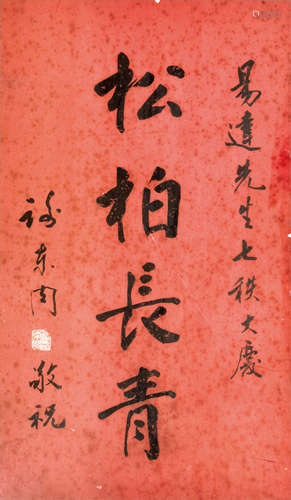 易達先生七秩大慶
松柏長青
謝東閔
敬祝